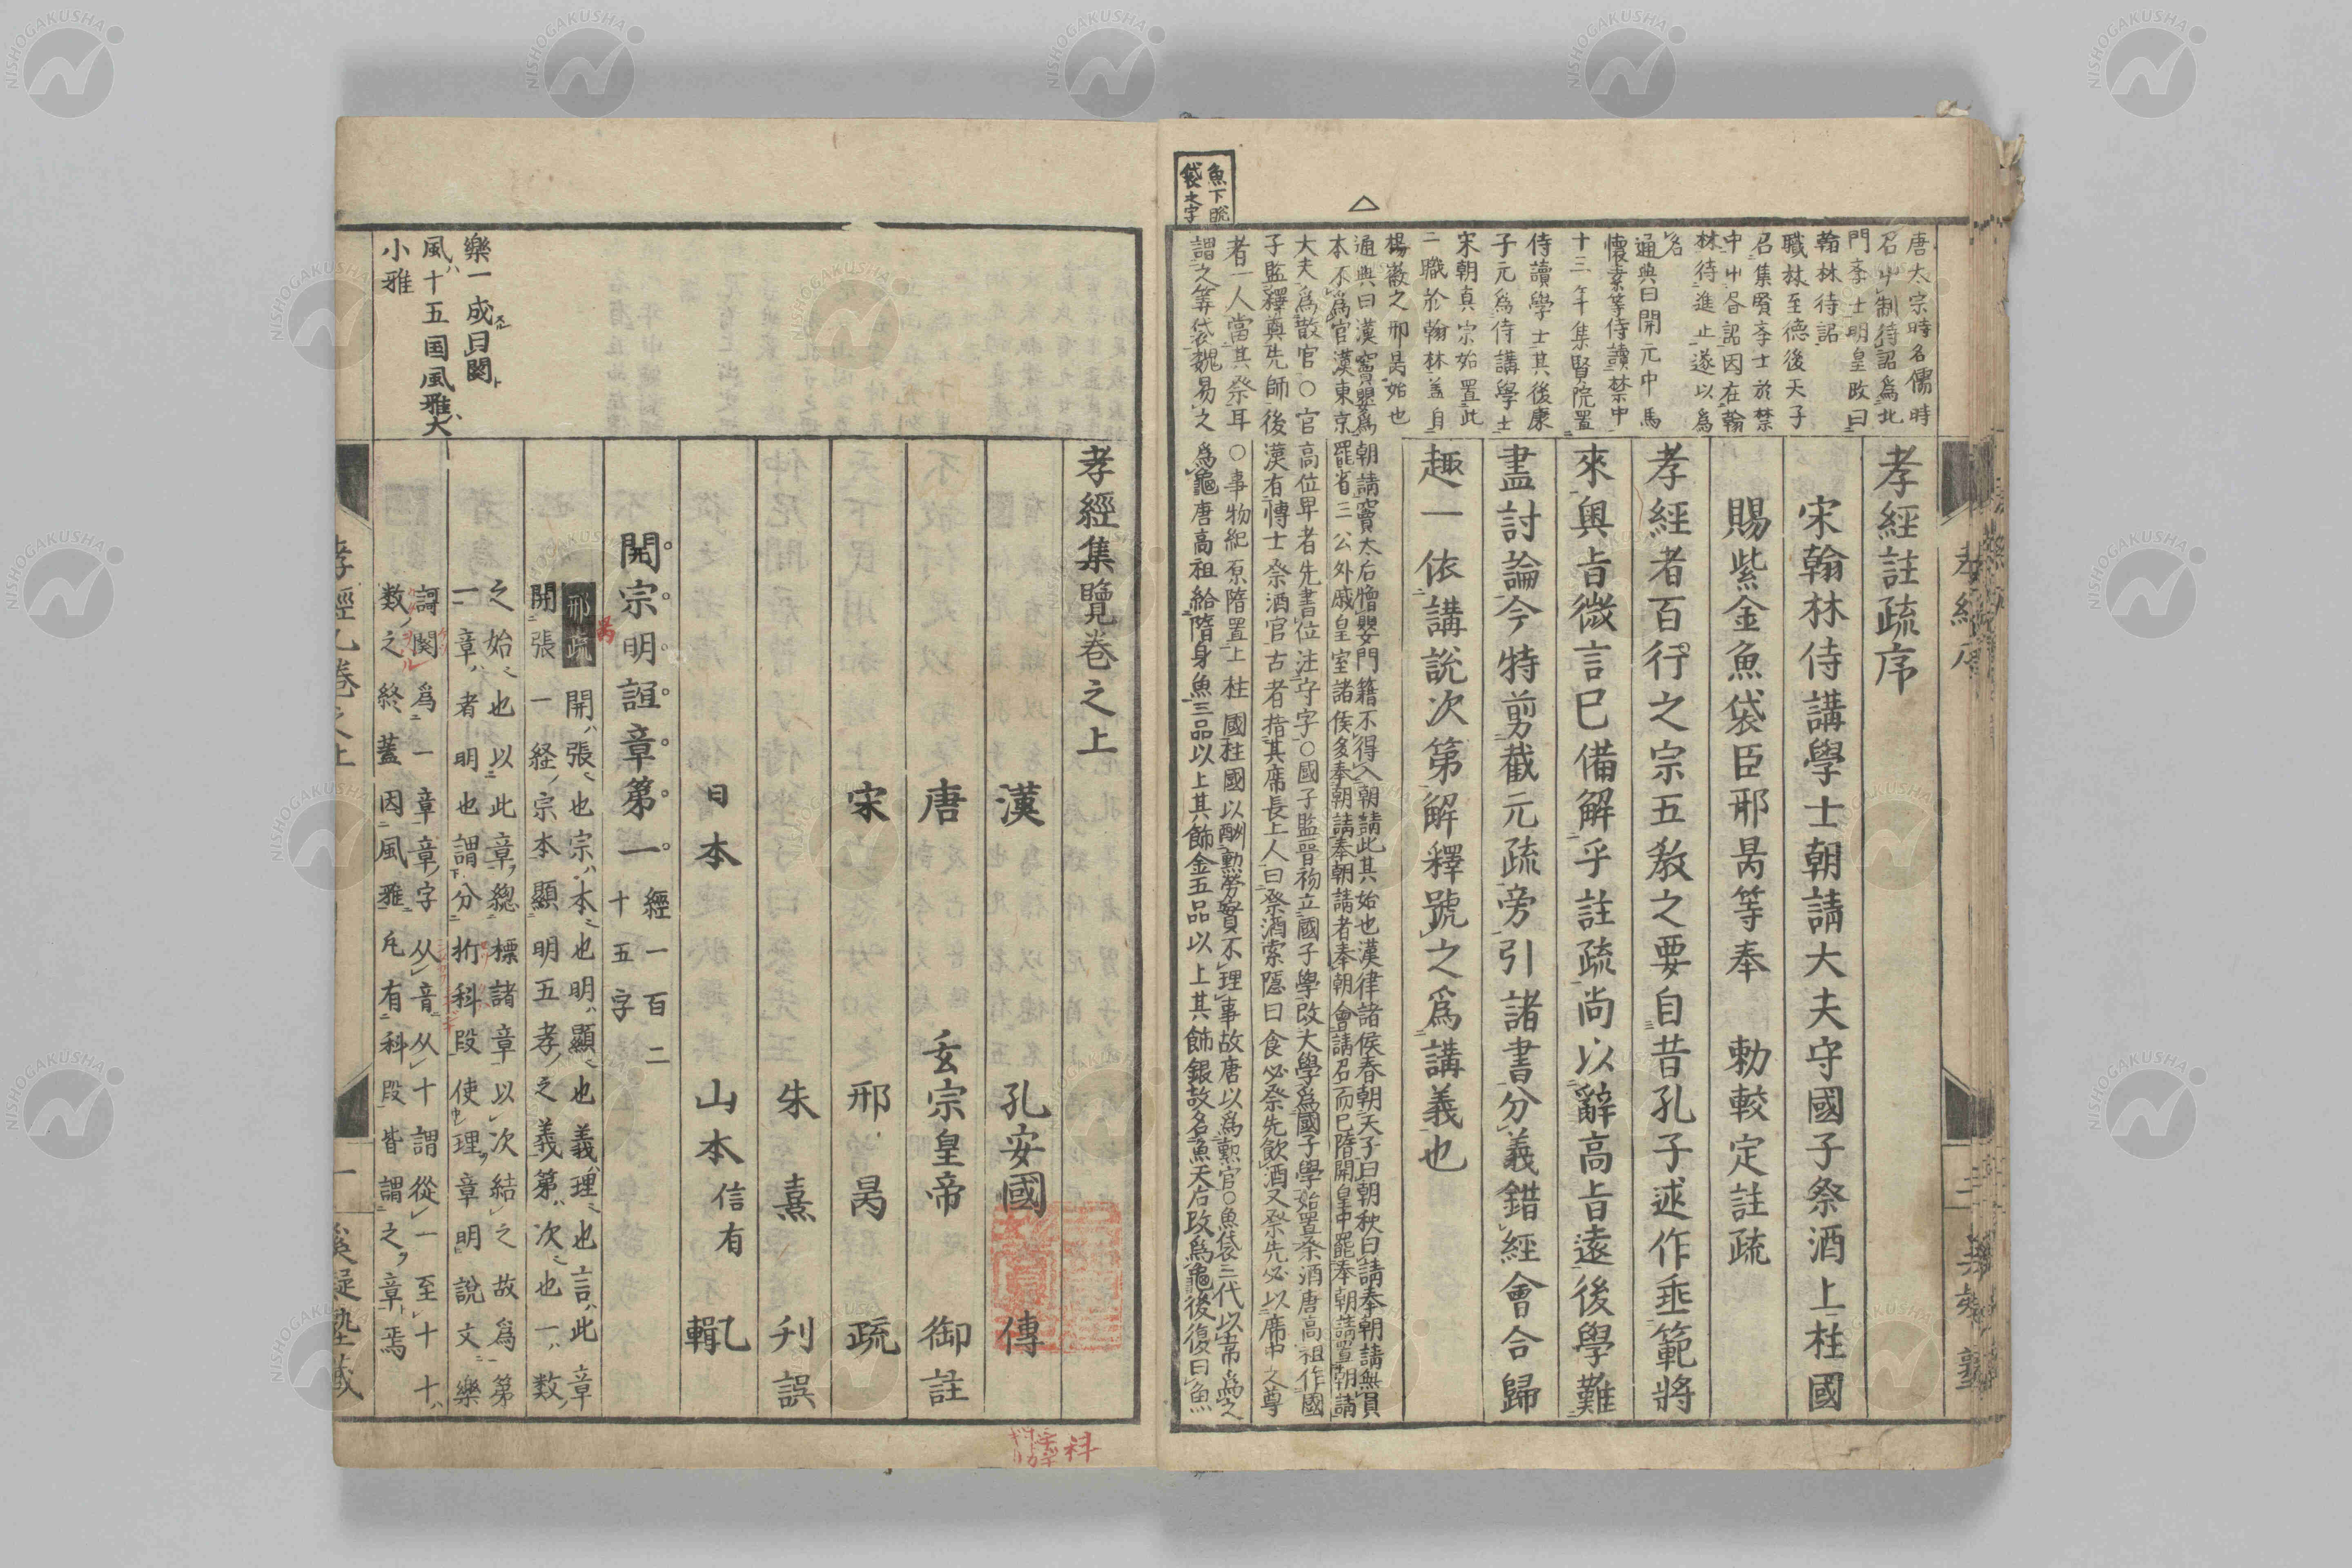 孝經註疏序
宋翰林侍講學士朝請大夫守國子祭酒上柱國
賜紫金魚袋臣邢昺等奉　勅較定註疏
孝經者百行之宗五教之要自昔孔子述作垂範將
來奥旨微言已備解乎註疏尚以辭高旨遠後學難
盡討論今特剪截元疏旁引諸書分義錯經會合歸
趣一依講説次第解釋號之爲講義也
唐太宗時名儒時
召中制待詔爲北
門李士明皇改曰
翰林待詔
職林至德後天子
召集賢李士於禁
中中召詔因在翰
林待進止遂以爲
名
通典曰開元中馬
懷素等侍讀禁中
十三年集賢院置
侍讀學士其後康
子元爲侍講學士
宋朝真宗始置此
二職於翰林蓋自
楊徽之邢昺始也
通典曰漢竇嬰爲朝請竇太后憎嬰門籍不得入朝請此其始也漢律諸侯春朝天子曰朝秋曰請奉朝請無員
本不爲官漢東京罷省三公外戚皇室諸侯多奉朝請奉朝請者奉朝會請召而已隋開皇中罷奉朝請置朝請
大夫爲散官○官高位卑者先書位注守字○國子監晋初立國子學改大學爲國子學始置祭酒唐高祖作國
子監釋奠先師後漢有博士祭酒官古者指其席長上人曰祭酒索隱曰食必祭先飲酒又祭先必以席中之尊
者一人當其祭耳○事物紀原隋置上柱國柱國以酬勲勞實不理事故唐以爲勲官○魚袋三代以韋爲之
謂之筭袋魏易之爲龜唐高祖給隋身魚三品以上其飾金五品以上其飾銀故名魚天后改爲龜後復曰魚
魚下脱
袋之字
孝經集覽卷之上
漢　孔安國　傳
唐　玄宗皇帝　御註
宋　邢昺　疏
朱熹　刋誤
日本　山本信有　輯
開宗明誼章第一
經一百二
十五字
邢疏　開張也宗本也明顯也義理也言此章
開張一経宗本顯明五孝之義第次也一數
之始也以此章緫標諸章以次結之故爲第
一章者明也謂分折科段使理章明説文樂
謌闋爲一章章字从音从十謂從一至十十
數之終蓋因風雅凡有科段皆謂之章焉
樂一成曰闋
風十五国風雅大
小雅
孝經乙卷之上
一
科